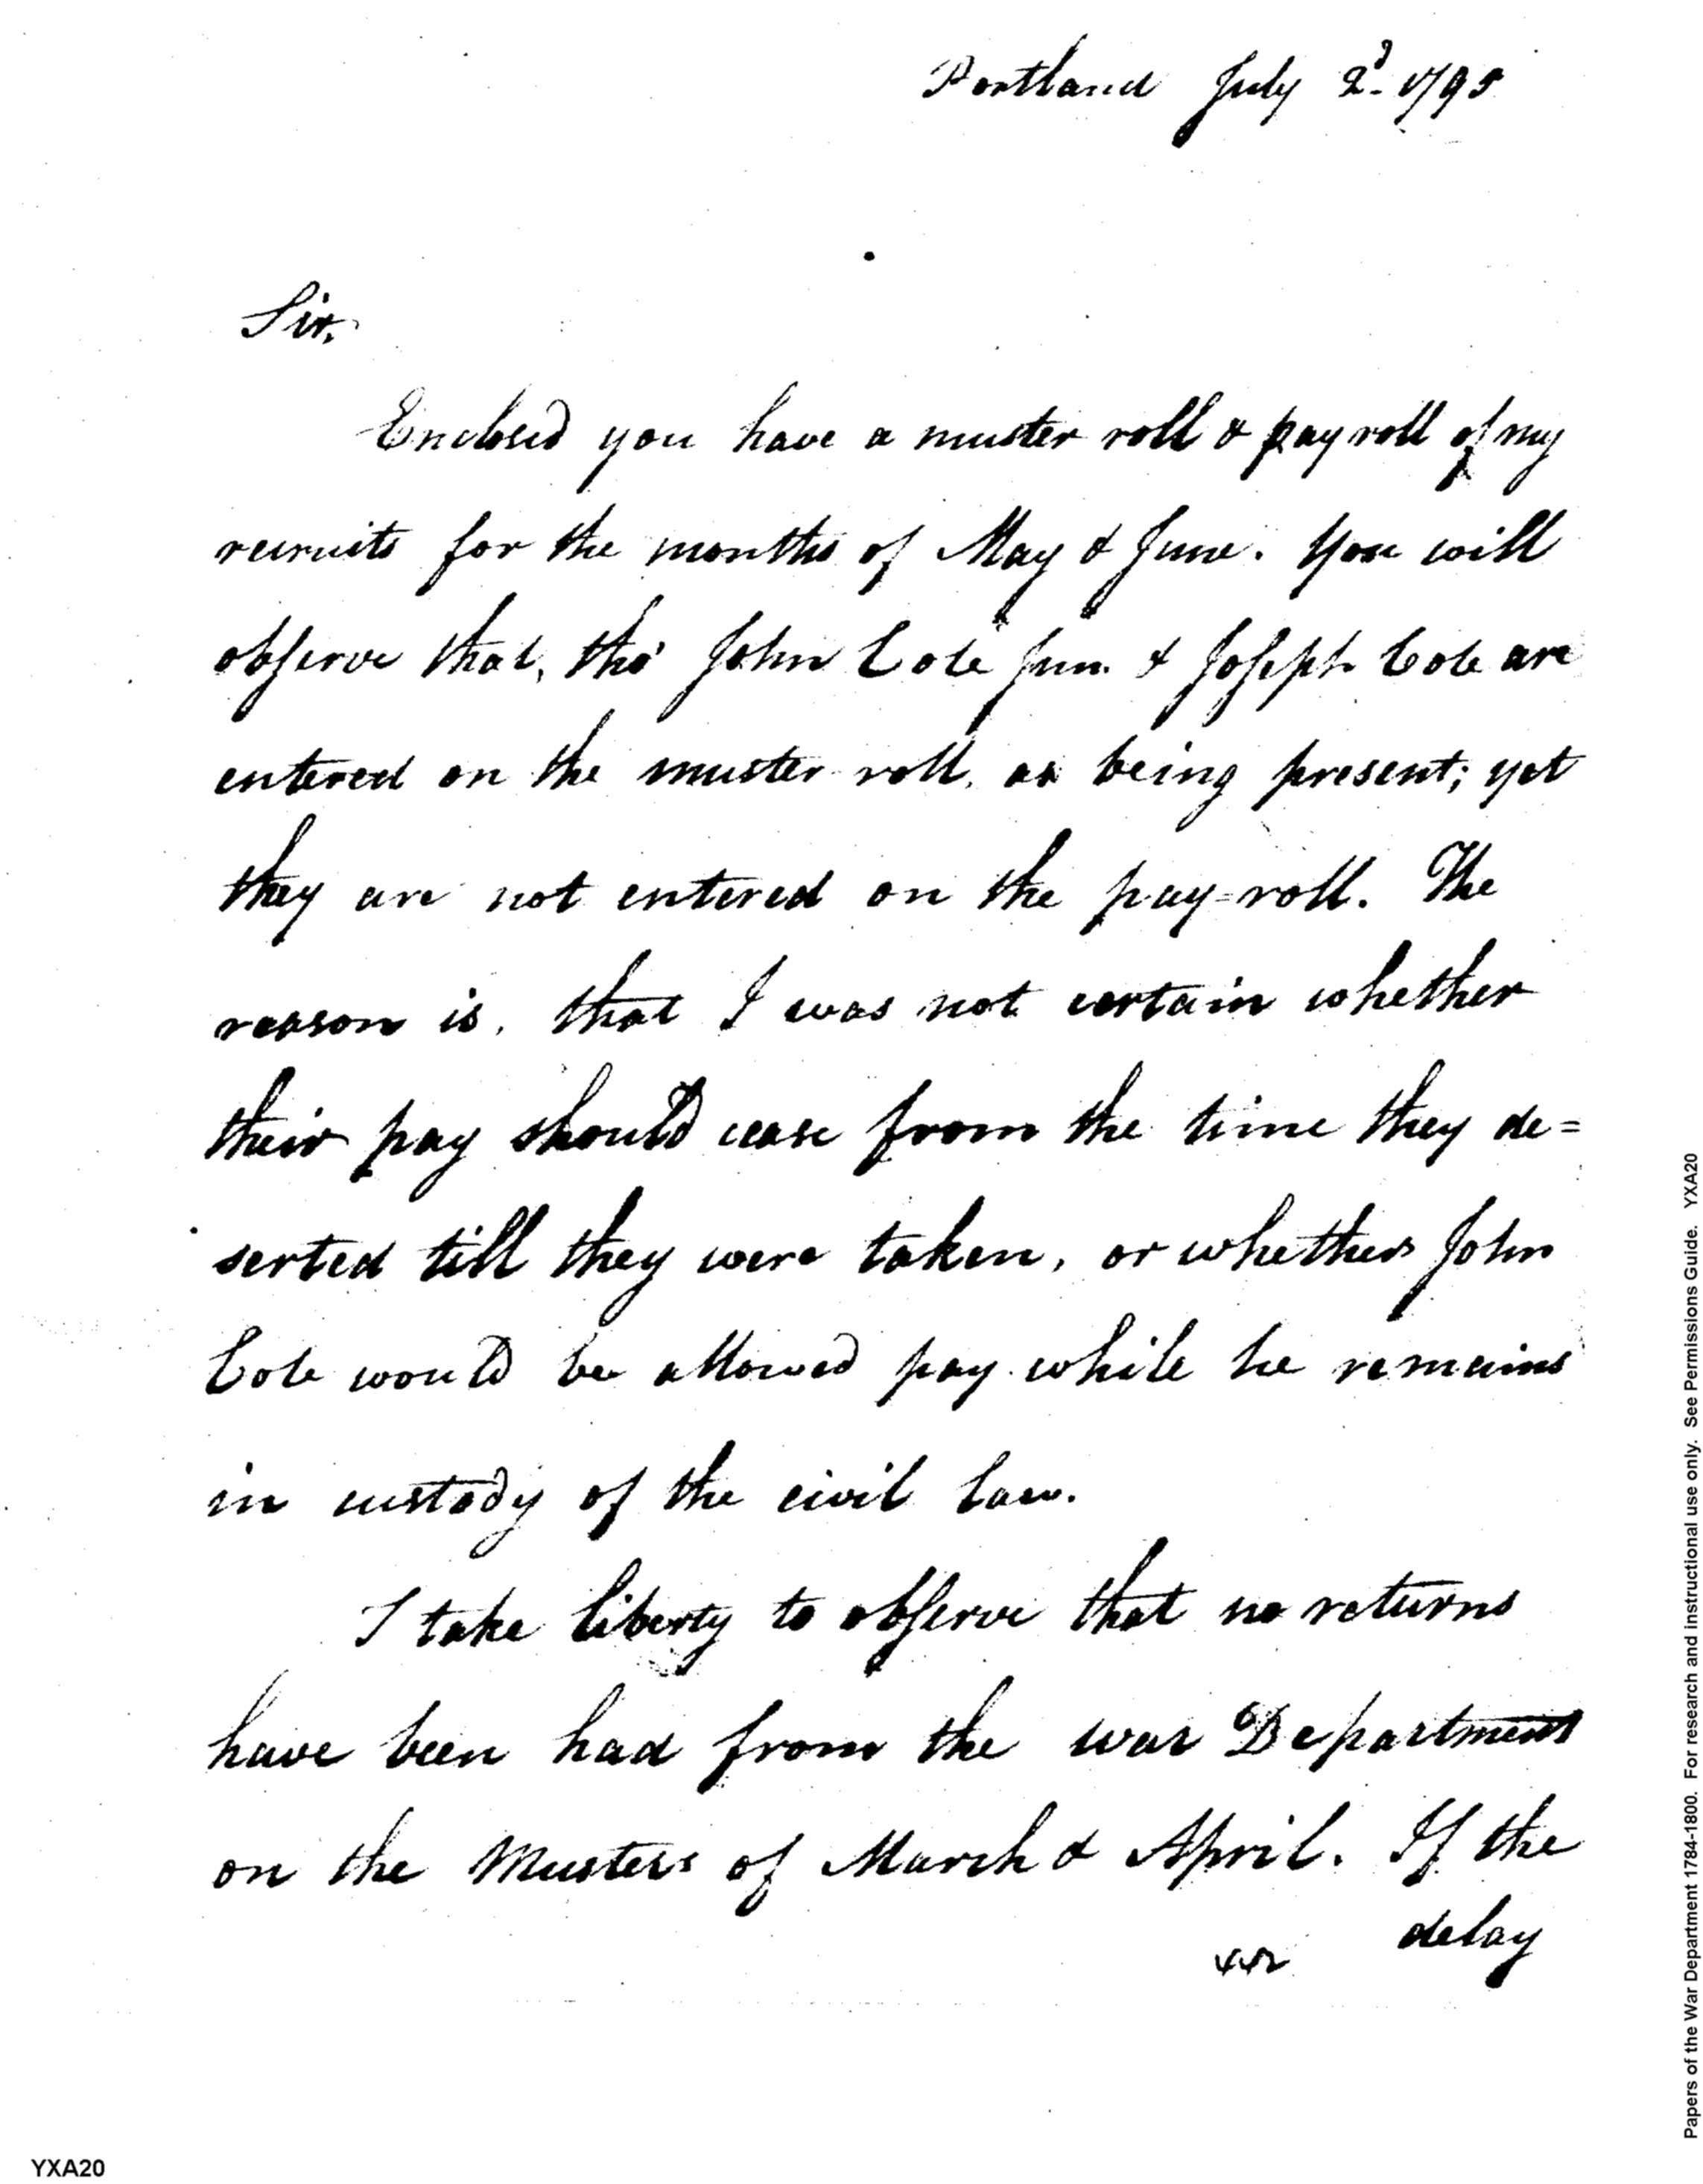 Portland July 2d. 1795
Sir,
Enclosed you have a muster roll & pay roll of my
recruits for the months of May & June. You will
observe that, tho' John Cole Jun. & Joseph Cole are
entered on the muster roll, as being present; yet
they are not entered on the pay-roll. The
reason is, that I was not certain whether
their pay should cease from the time they de=
serted till they were taken, or whether John
Cole would be allowed pay while he remains
in custody of the civil law.
I take liberty to observe that no returns
have been had from the war Department
on the Musters of March & April. If the
delay
YXA20
Papers of the War Department 1784-1800. For research and instructional use only. See Permissions Guide. YXA20